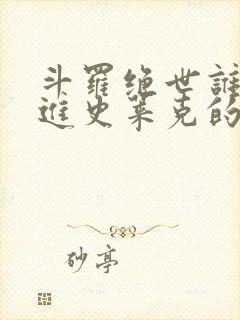 斗羅绝世誰
進史莱克的
砂亭